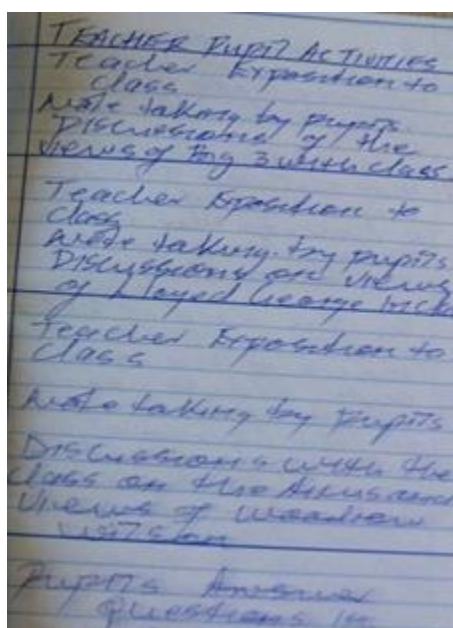 TEACHER PUPIL ACTIVITIES
Teacher Exposition to
class
Note taking by pupils.
Discussions of the
views of Big 3 with class
Teacher Exposition to
class
Note taking by pupils
Discussions on views
of Lloyd George
Teacher Exposition to
class
Note taking by pupils
Discussions with the
class on the Aims and
views of Woodrow
Wilson
Pupils Answer
questions in